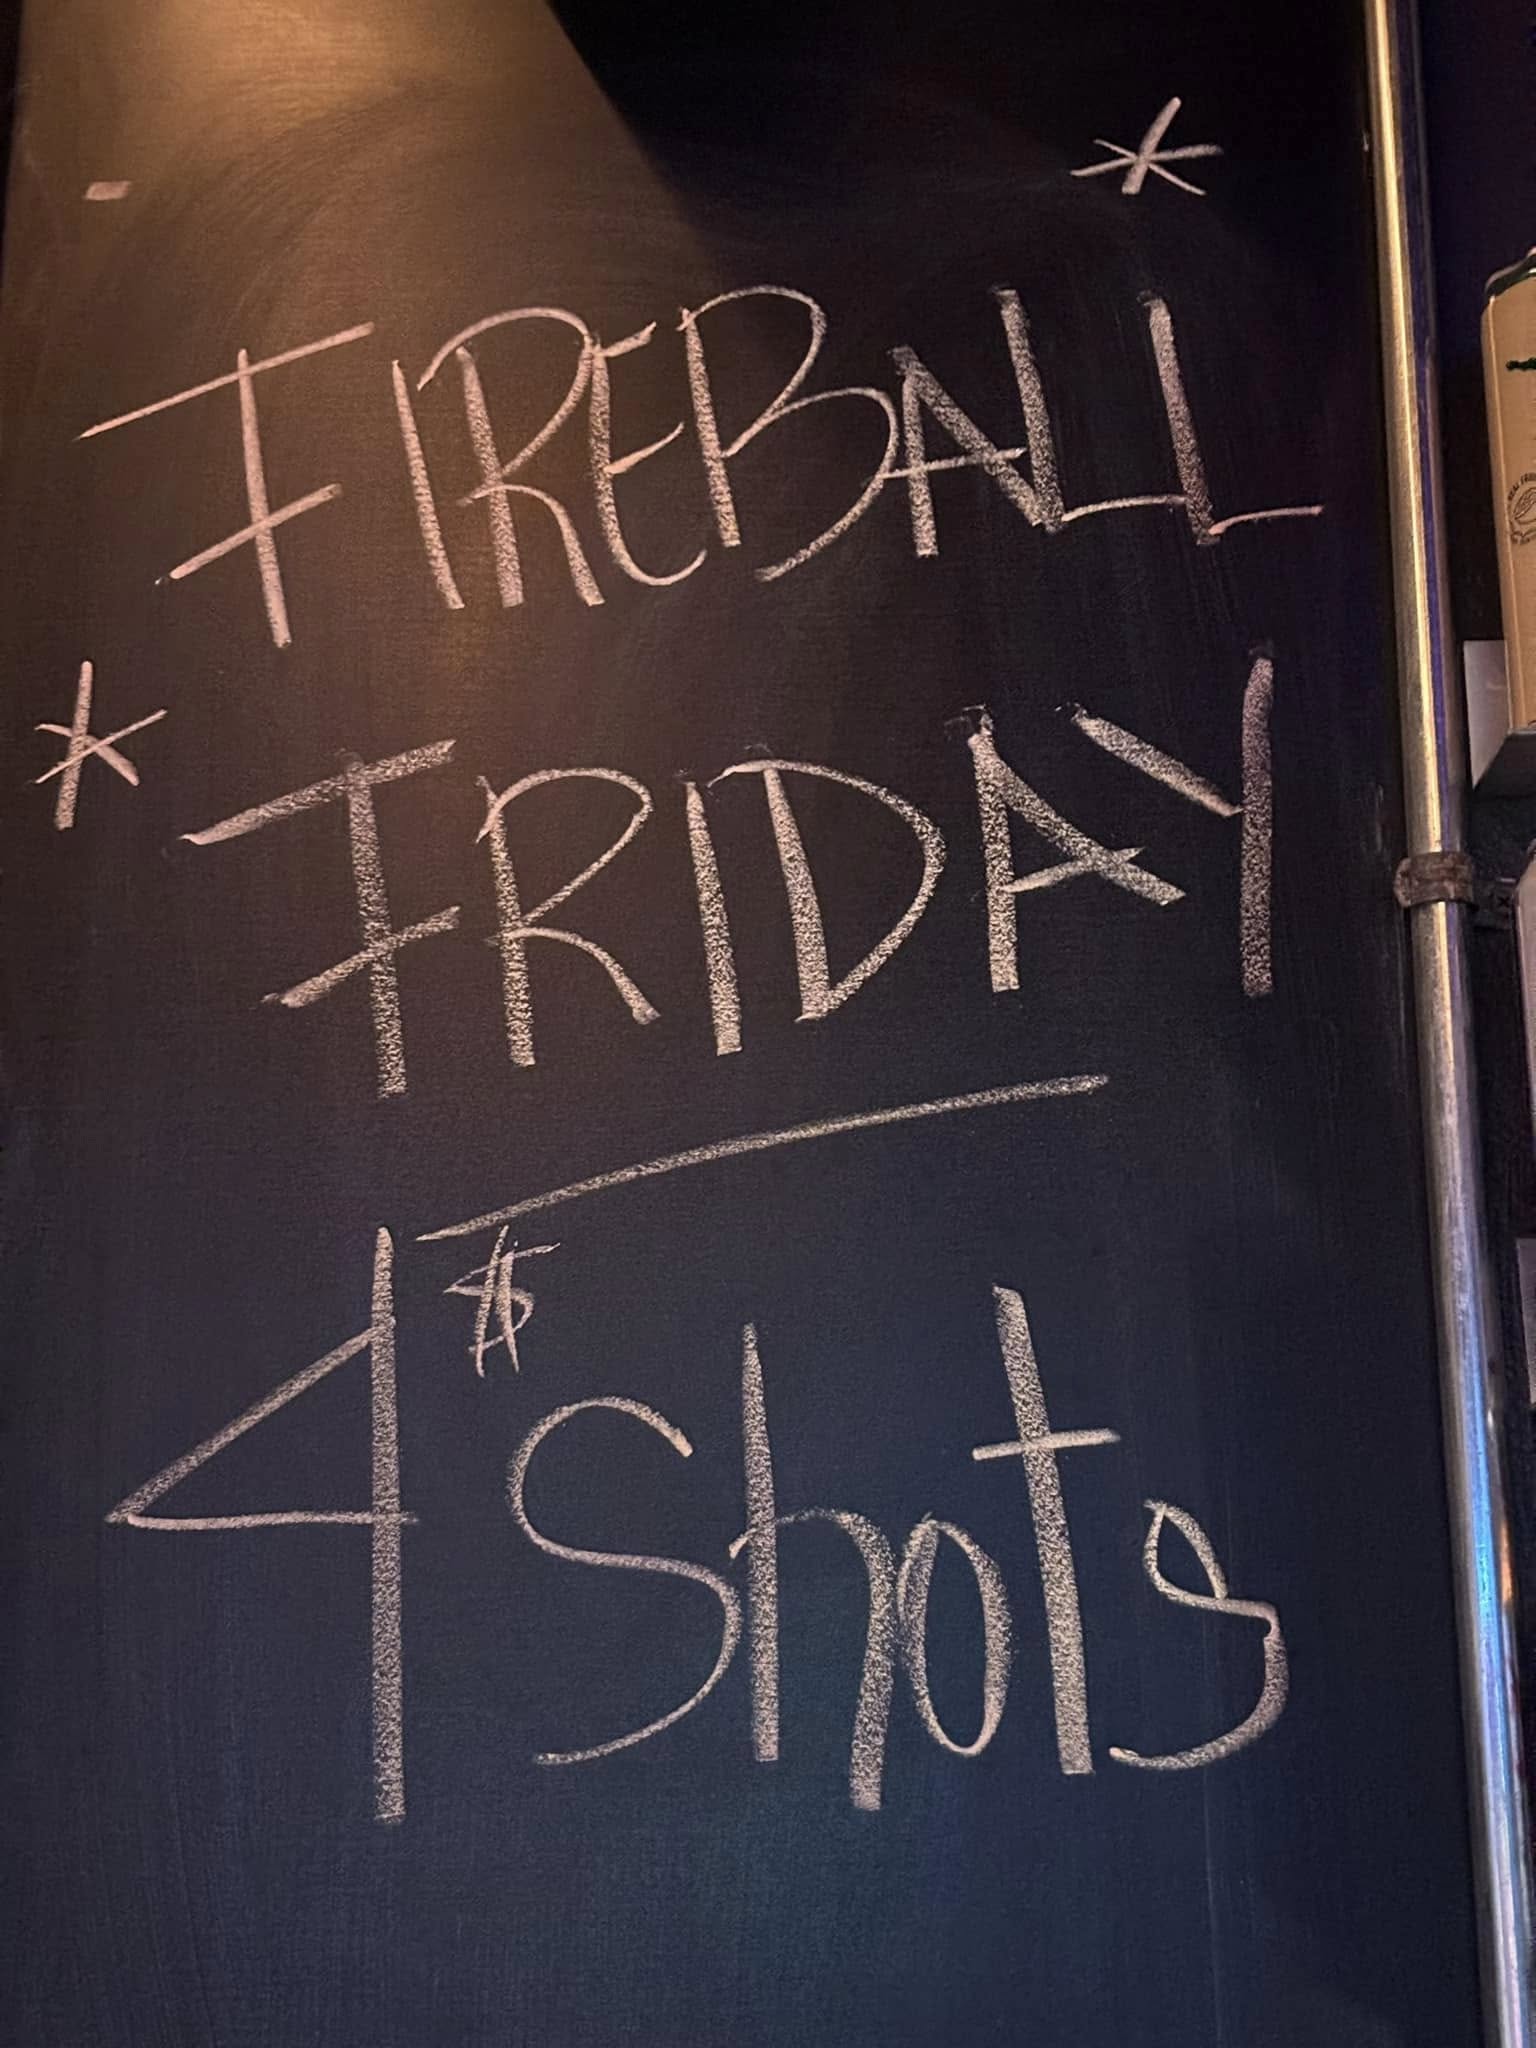 FIREBALL
FRIDAY
4$ Shots